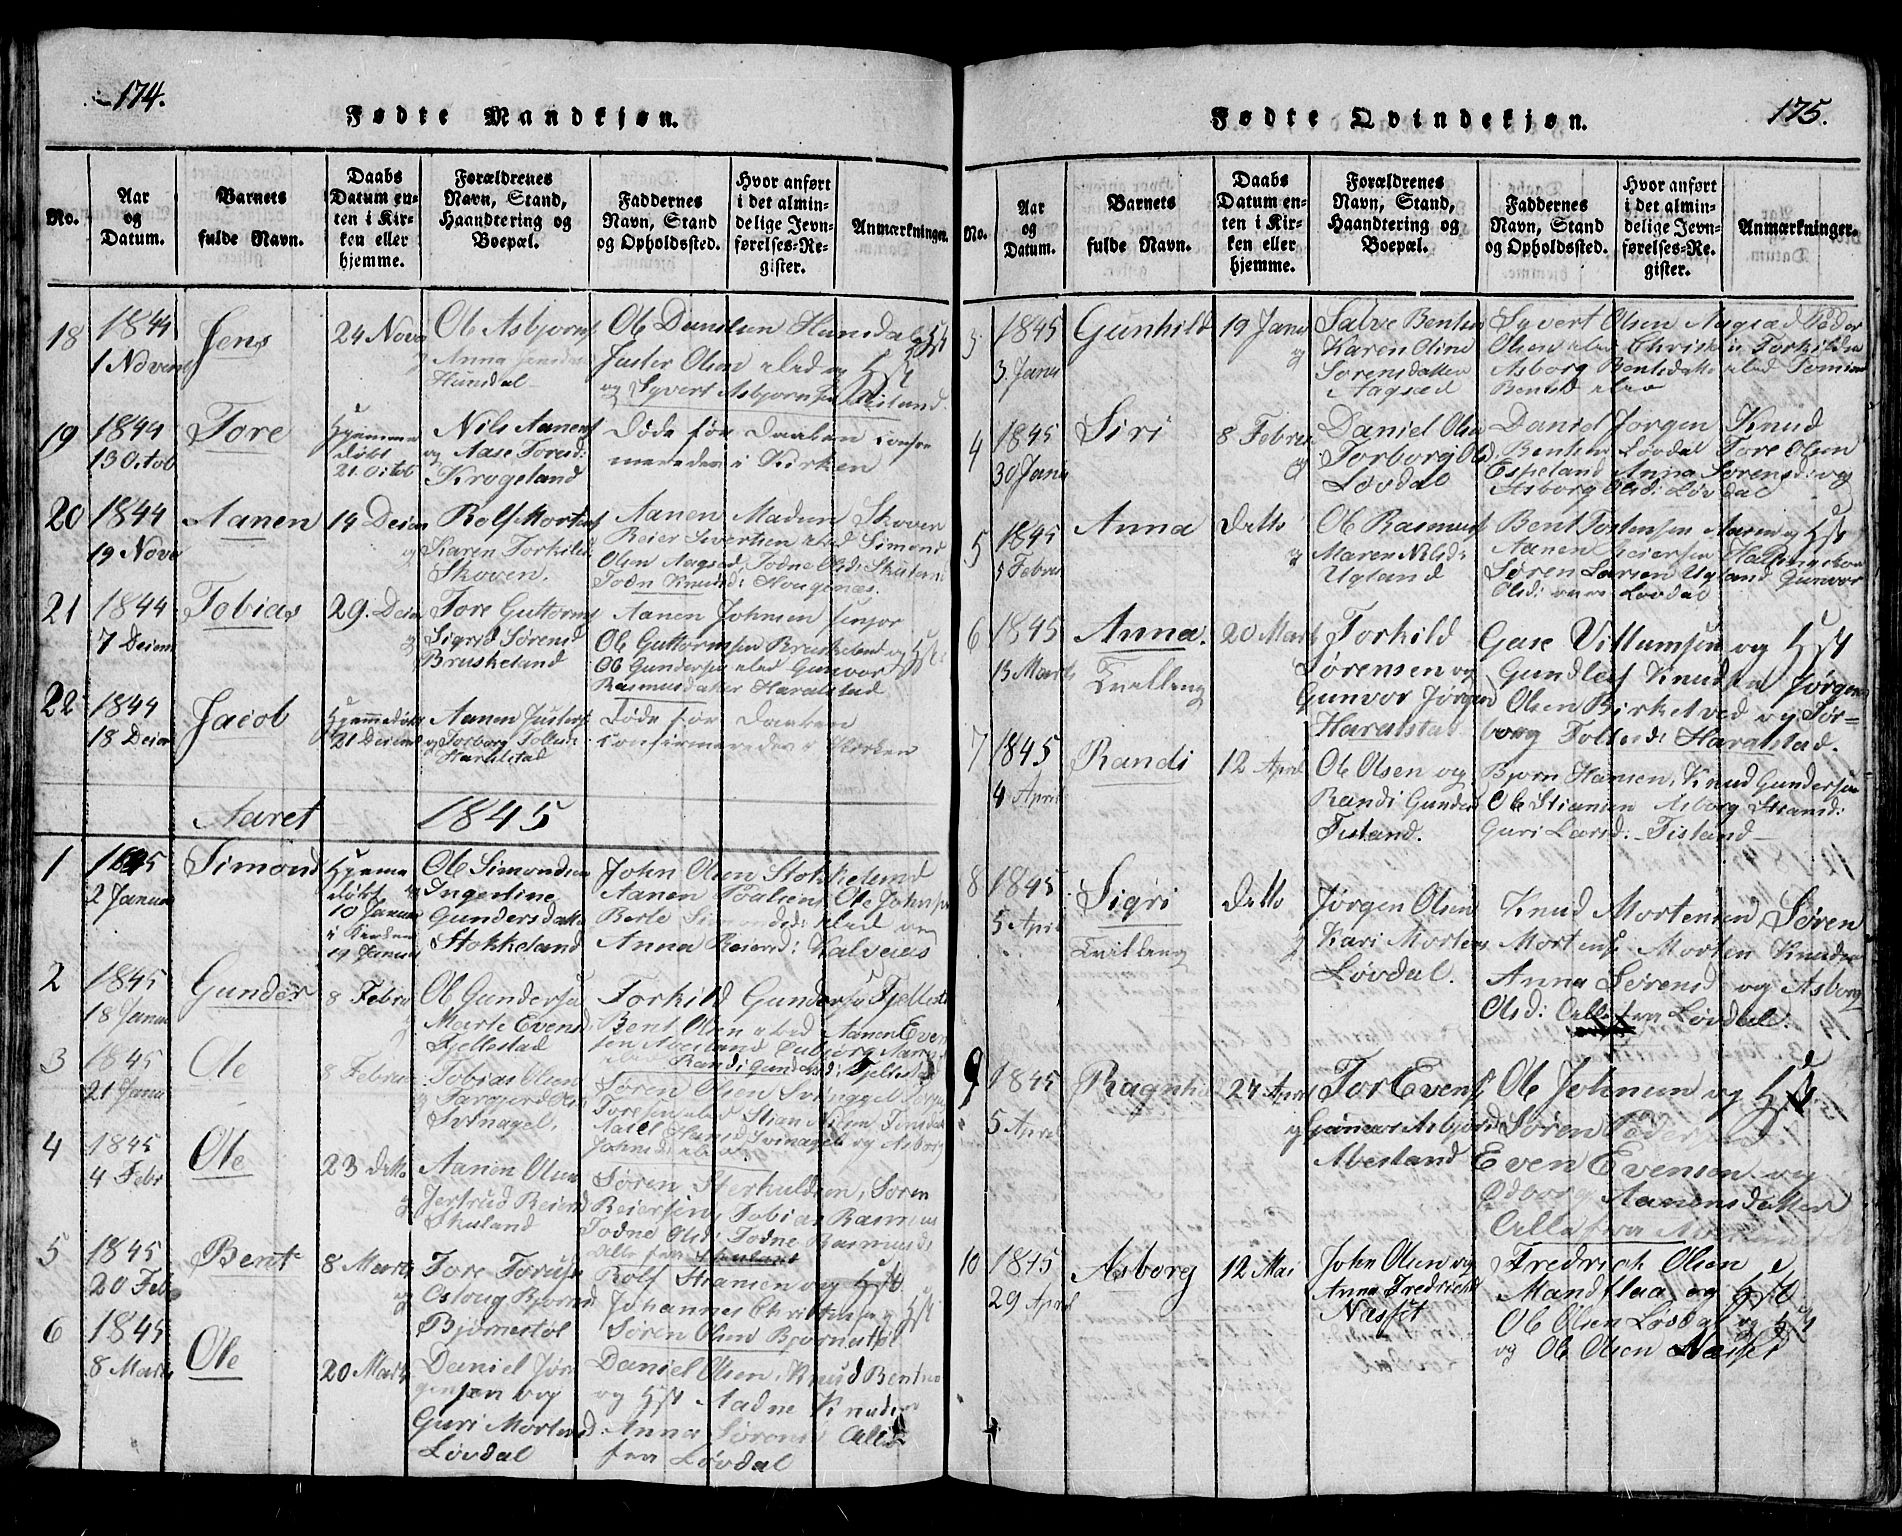 174.
Fødte Mandkjøn.
No.
Aar og Datum.
Barnets fulde Navn.
Daabs Datum enten i Kirken eller hjemme.
Forældrenes Navn, Stand, Haandtering og Boepæl.
Faddernes Navn, Stand og Opholdssted.
Hvor anført i det almindelige Jevnførelses-Register.
Anmærkninger.
18
1844
1 Novem
Jens
24 Novr
Ole Asbjorns
og Anna
Hundal
Ole Danielsen Hunsdal og Hst
Juster Olsen ibid og Hst
og Syvert Asbjornsen Eieland
19
1844
13 Octob
Tore
Hjemme
døbt
21 Octob
Nils Aanens
og Aase Toresd:
Krogeland
Døde før Daaben confir
meredes i Kirken
20
1844
19 Nove
Aanen
14 Decem
Rolf Mortens
og Karen Torkilds
Skoven.
Aanen Madsen Skoven
Reier Sivertsen ibid Simond
Olsen Aagsad, Todne Olsd: Skuland
Todn Knudsd: Hougenæs.
21
1844
7 Decem
Tobias
29. Decem
Tore Guttorms
og Sigrid Sørensd
Bruskeland
Aanen Johnsen
Ole Guttormsen Bruskeland og Hst
Ole Gundersen ibid Gunvor
Rasmusdatter Haralstad
22
1844
18 Decem
Jacob
Hjemmedøbt
21 Decem
Aanen Justers
og Torborg Tollesd:
Haralstad
Døde før Daaben
confirmeredes i Kirken
Aaret 1845
1
1845
2 Januar
Simond
Hjemme
døbt
10 Januar
i Kirken
19 Januar
Ole Simondsen
og Ingertine
Gundersdatter
Stokkeland
John Olsen Stokkeland
Aanen Poulsen, Ole Johnsen
Berte Simondsd: ibid og
Anna Reiersd: Kalveaas
2
1845
18 Janu
Gunder
8 Febru
Ole Gundersen
og Marte Evensd:
Fjellestad
Torkild Gundersen Fjellestad
Bent Olsen ibid Aanen Even
sen Abesland
ibid Randi Gundersd: Fjellestad
3
1845
21 Janu
Ole
8 Februar
Tobias Olsen
og Targjerd Ols
Svinagel.
Søren Olsen Svinagel
Toresen ibid Stian
Aasel Hansd Svinagel og Asborg
Johnsd: ibid.
4
1845
4 Febr
Ole
23 detto
Aanen Olsen
og Jertrud Reiersd
Skuland
Søren Sterkuldsen, Søren
Reiersen, Tobias Rasmus
Todne Olsd: Todne Rasmusd:
Alle fra Skuland
5
1845
20 Feb
Bent
8 Marts
Tore Torus
og Oslaug Bjorns
Bjørnestøl
Rolf Stiansen og Hst
Johannes Christensen og Hst
Søren Olsen Bjørnestøl
6
1845
8 Marts
Ole
20 Marts
Daniel Jør
gensen og
Guri Mortensd.
Løvdal
Daniel Olsen, Knud Bentsen
og Hst Aadne Knudsen
Anna Sørens Alle
fra Løvdal
175.
Fødte Qvindekjøn.
No.
Aar og Datum.
Barnets fulde Navn.
Daabs Datum enten i Kirken eller hjemme.
Forældrenes Navn, Stand, Haandtering og Boepæl.
Faddernes Navn, Stand og Opholdssted.
Hvor anført i det almindelige Jevnførelses-Register.
Anmærkninger.
3
1845
3. Janu
Gunhild
19 Janu
Salve Bentsen
og Karen Oline
Sørensdatter
Aagsæd
Syvert Olsen Aagsæd Peder
Olsen ibid Christen Torkildsen
Asborg Bentsdatter ibid
Bentsd ibid
4
1845
30 Janu
Siri
8 Febru
Daniel Olsen
og Torborg Olsd
Løvdal
Daniel Jørgen Knud
Bentsen Løvdal Tore Olsen
Espeland Anna Sørensd: og
Asborg Olsd: Løvdal
5
1845
5 Febru
Anna
detto
Ole Rasmus
og Maren Nilsd:
Ugland
Bent Tortensen Aaren og Hst
Aanen Reiersen
Søren Larsen Ugland Gunvor
Olsd: Løvdal
6
1845
13 Marts
Anna.
Tvilling
20 Marts
Torkild
Sørensen og
Gunvor Jørgensd
Haralstad
Gase Villumsen og Hst
Gundlef Knudsen Jørgen
Olsen Birketved og Tor-
borg Tollesd: Haralstad.
7
1845
4 April
Randi
12 April
Ole Olsen og
Randi Gundersd
Tisland.
Bjørn Hansen, Knud Gundersen
Ole Stiansen Asborg Stiansd:
Guri Larsd: Tisland
8
1845
5 April
Sigri
Tvilling
detto
Jørgen Olsen
og Kari Mortens
Løvdal.
Knud Mortensen Søren
Mortens Morten Knudsen
Anna Sørensd og Asborg
Olsd: Alle fra Løvdal.
9
1845
5 April
Ragnhild
24 April
Tor Evens
og Gunvor Asbjørnsd
Abesland
Ole Johnsen og Hst
Søren Pedersen
Even Evensen og
Edborg Aanensdatter
Alle fra Abesland
10
1845
29 April
Asborg
12 Mai
John Olsen og
Anna Fredrichs
Næsset
Fredrich Olsen
Mandflaa og Hst
Ole Olsen Løvdal og Hst
og Ole Olsen Næsset